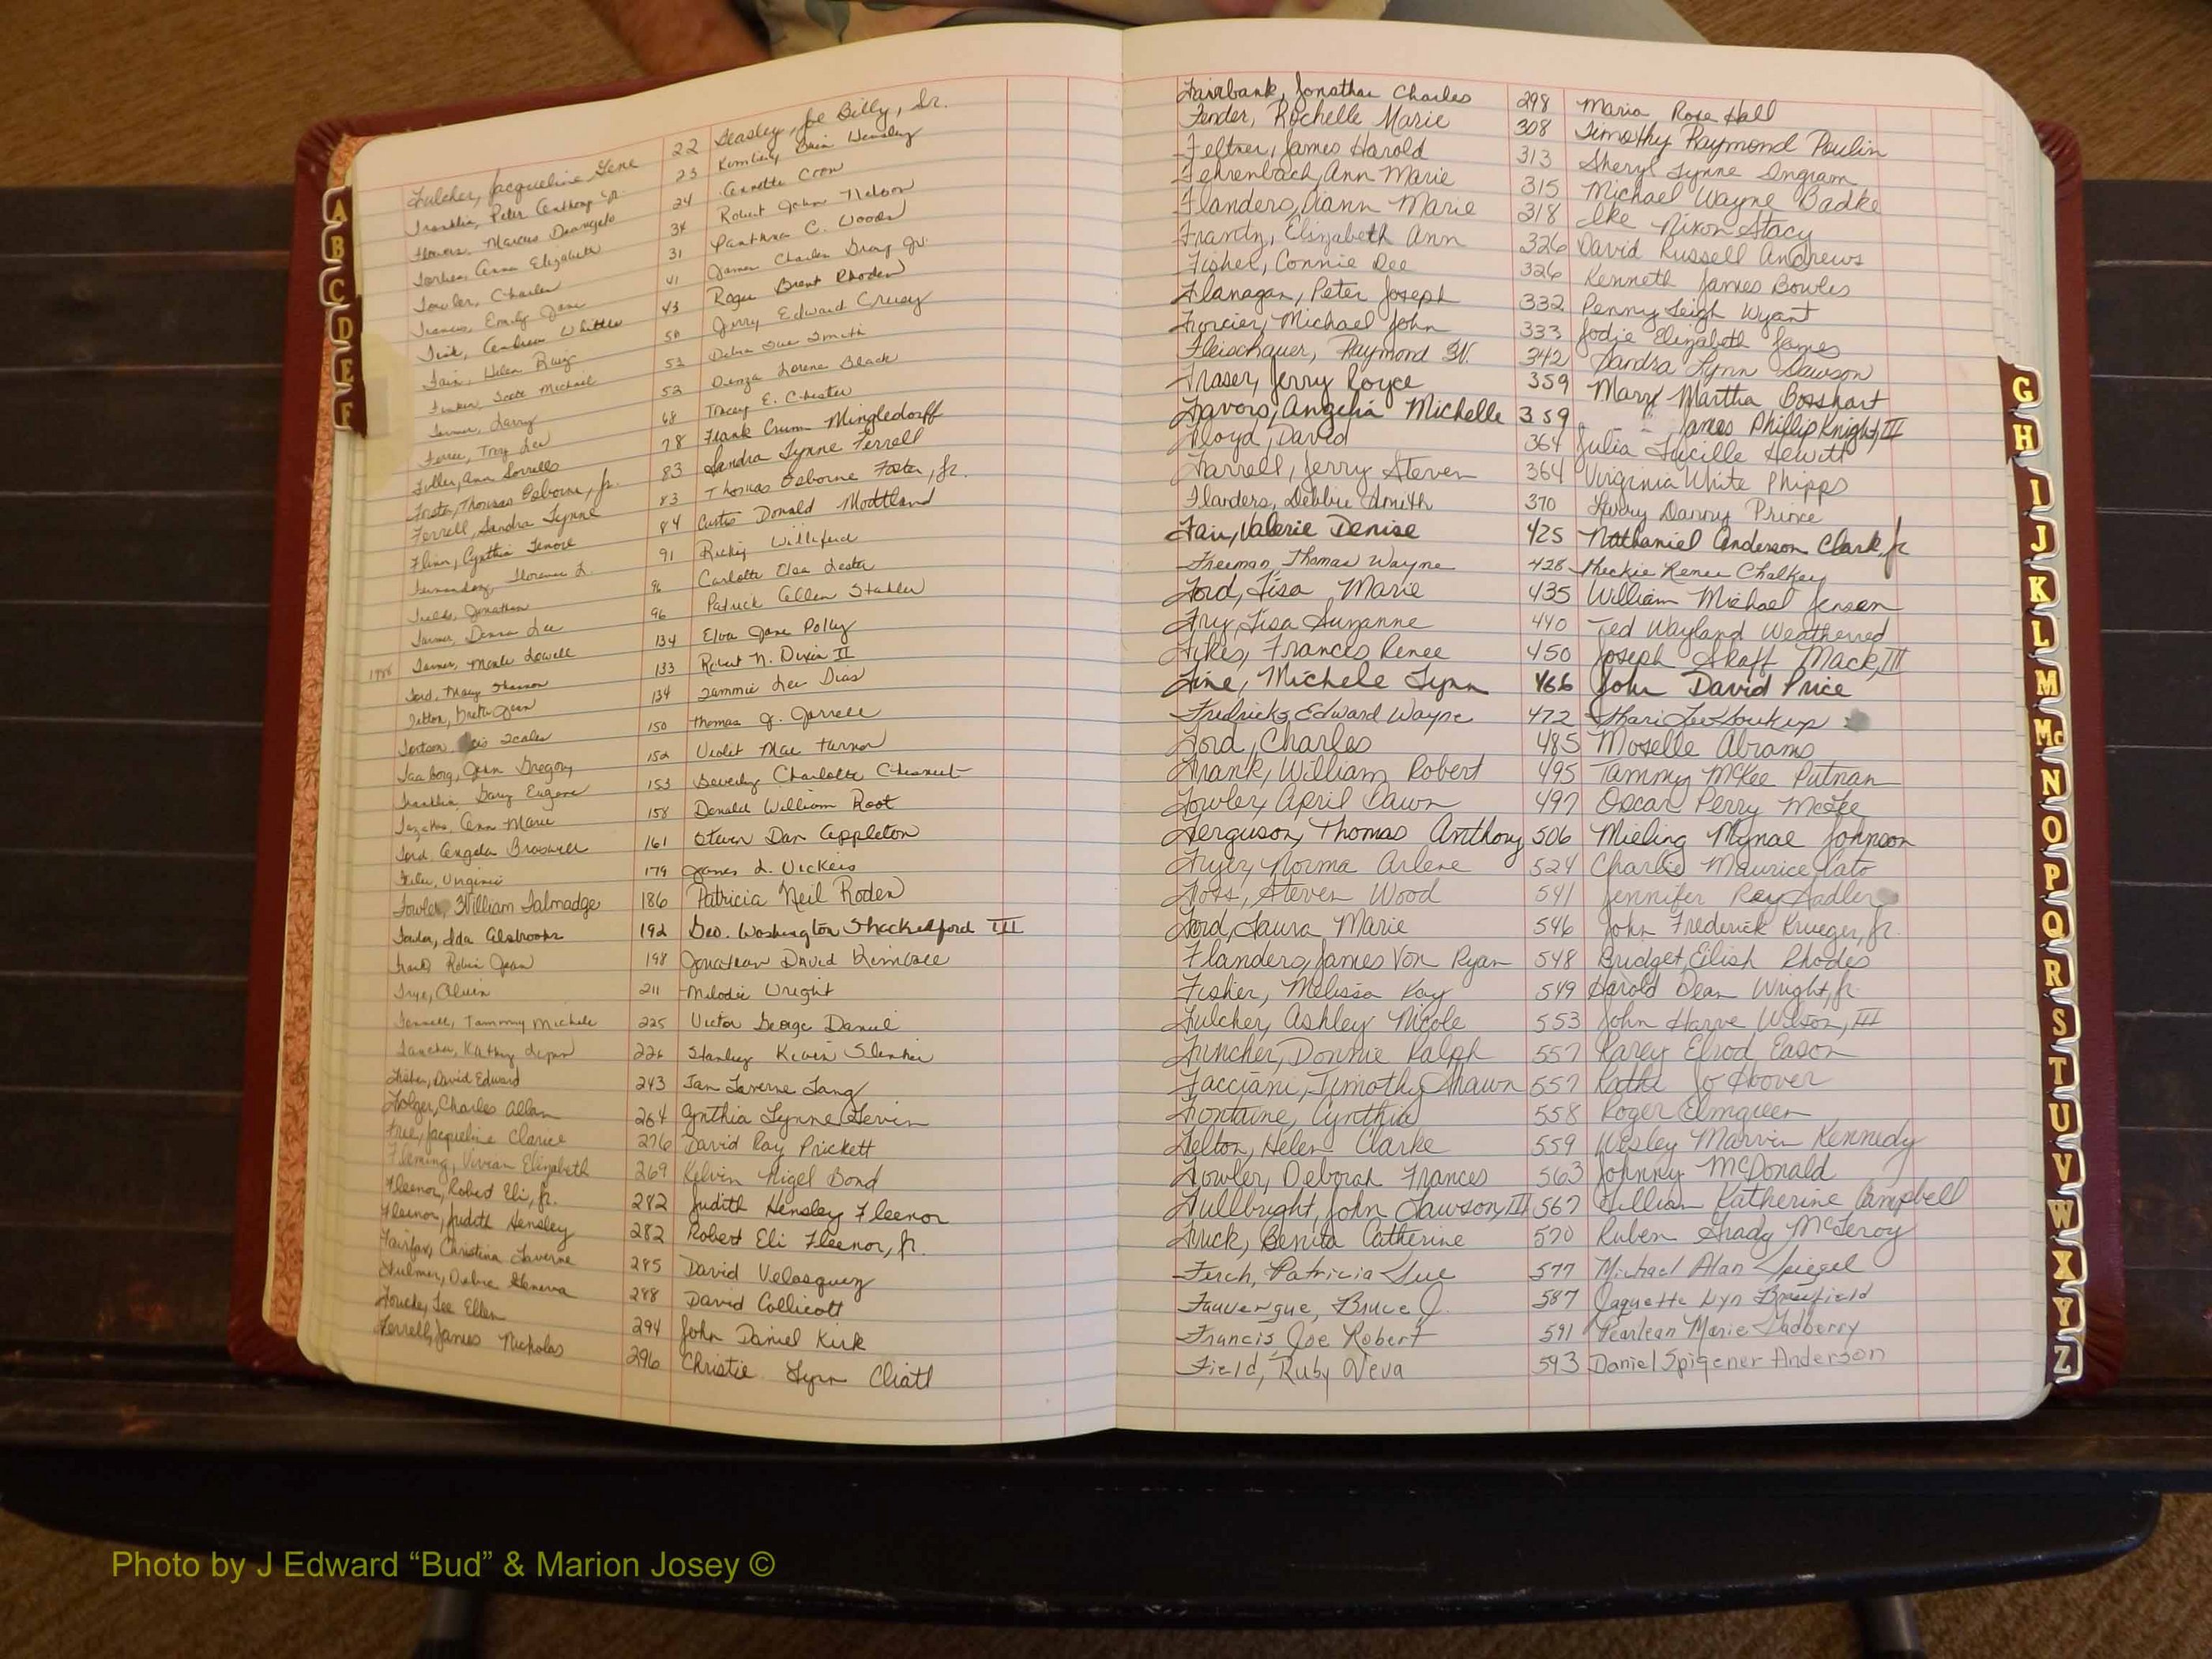 A
B
C
D
E
F
Fulcher, Jacqueline Gene 22 Beasley, Joe Billy, Sr.
Franklin, Peter Anthony Jr. 23
Flowers, Marcus Deangelo 24 Annette Coon
Forbes, Anna Elizabeth 34 Robert John Nelson
Fowler, Charles 31 Panthea C. Woods
Francis, Emily Jane 41 James Charles Gray Jr.
Fisk, Andrew Whittle 43 Roger Brent Rhoden
Fain, Helen 50 Jerry Edward Creasy
Scott Michael 53 Debra Sue Smith
Farmer, Larry 52 Lorene Black
Ferree, Troy Lee 68 Tracey E. Chester
Fuller, Ann Sorrells 78 Frank Crum Mingledorff
Foster, Thomas Osborne, Jr. 83 Sandra Lynne Ferrell
Ferrell, Sandra Lynne 83 Thomas Osborne Foster, Jr.
Flinn, Cynthia Lenore 84 Curtis Donald Modtland
Fernandez, Florence L. 91 Ricky Williford
Fields, Jonathan 96 Carlotta Elsa Lester
Farmer, Donna Lee 96 Patrick Allen Stahler
1988 Farmer, Monte Lowell 134 Elva Jane Polly
Ford, Mary Shannon 133 Robert N. Dixon II
134 Tammie Lee Dias
150 Thomas J. Jarrell
Faaborg, John Gregory 152 Violet Mae Turner
Franklin, Gary Eugene 153 Beverly Charlotte Chesnut
Ann Marie 158 Donald William Root
Ford, Angela Braswell 161 Steven Dan Appleton
Virginia 179 James L. Vickers
Fowler, William Talmadge 186 Patricia Neil Roden
Fowler, Ida Alsbrooks 192 Geo. Washington Shackelford III
Robin Jean 198 Jonathan David Kimbell
Frye, Alvin 211 Melodie Wright
Fennell, Tammy Michele 225 Victor George Daniel
Fancher, Kathy Lynn 226 Stanley Kevin
Fisher, David Edward 243 Jan Laverne Lang
Folger, Charles Allan 264 Cynthia Lynne Levin
Free, Jacqueline Clarice 276 David Ray Prickett
Fleming, Vivian Elizabeth 269 Kelvin Nigel Bond
Fleenor, Robert Eli, Jr. 282 Judith Hensley Fleenor
Fleenor, Judith Hensley 282 Robert Eli Fleenor, Jr.
Fairfax, Christina Laverne 285 David Velasquez
Fulmer, Debra Geneva 288 David Collicott
Fouche, Lee Ellen 294 John Daniel Kirk
Ferrell, James Nicholas 296 Christie Lynn Cliatt
Fairbank, Jonathan Charles 298 Maria Rose Hall
Fender, Rochelle Marie 308 Timothy Raymond Poulin
Feltner, James Harold 313 Sheryl Lynne Ingram
Fehrenbach, Ann Marie 315 Michael Wayne Badke
Flanders, Diann Marie 318 Ike Nixon Stacy
Frandy, Elizabeth Ann 326 David Russell Andrews
Fisher, Connie Dee 326 Kenneth James Bowles
Flanagan, Peter Joseph 332 Penny Leigh Wyant
Forcier, Michael John 333 Jodie Elizabeth James
Fleischauer, Raymond W. 342 Sandra Lynn Dawson
Fraser, Jerry Royce 359 Mary Martha Bosshart
Favors, Angelia Michelle 359 James Phillip Knight, III
Floyd, David 364 Julia Lucille Hewitt
Farrell, Jerry Steven 364 Virginia White Phipps
Flanders, Debbie Smith 370 Harry Danny Prince
Fair, Valerie Denise 425 Nathaniel Anderson Clark, Jr
Freeman, Thomas Wayne 428 Renee Chalkey
Ford, Lisa Marie 435 William Michael Jensen
Fry, Lisa Suzanne 440 Ted Wayland Weatherred
Fikes, Frances Renee 450 Joseph Skaff Mack, III
Fine, Michele Lynn 466 John David Price
Fredricks, Edward Wayne 472 Shari Lee Soukup
Ford, Charles 485 Moselle Abrams
Frank, William Robert 495 Tammy McKee Putnan
Fowler, April Dawn 497 Oscar Perry McGee
Ferguson, Thomas Anthony 506 Mieling Mynae Johnson
Fryer, Norma Arlene 524 Charlie Maurice Cato
Foss, Steven Wood 541 Jennifer Ray Sadler
Ford, Laura Marie 546 John Frederick Krueger, Jr.
Flanders, James Von Ryan 548 Bridget Eilish Rhodes
Fisher, Melissa Kay 549 Harold Dean Wright, Jr.
Fulcher, Ashley Nicole 553 John Harve Wilson, III
Funcher, Donnie Ralph 557 Karey Elrod Eason
Facciani, Timothy Shawn 557 Kathi Jo Hoover
Fontaine, Cynthia 558 Roger Elmqueen
Felton, Helen Clarke 559 Wesley Marvin Kennedy
Fowler, Deborah Frances 563 Johnny McDonald
Fullbright, John Lawson, III 567 Gillian Katherine Campbell
Frick, Benita Catherine 570 Ruben Grady McLeroy
Ferch, Patricia Sue 577 Michael Alan Spiegel
Fauvergue, Bruce J. 587 Jaquette Lyn
Francis, Joe Robert 591 Pearlean Marie Gadberry
Field, Ruby Neva 593 Daniel Spigener Anderson
G
H
I
J
K
L
M
Mc
N
O
P
Q
R
S
T
U
V
W
X
Y
Z
Photo by J Edward “Bud” & Marion Josey ©